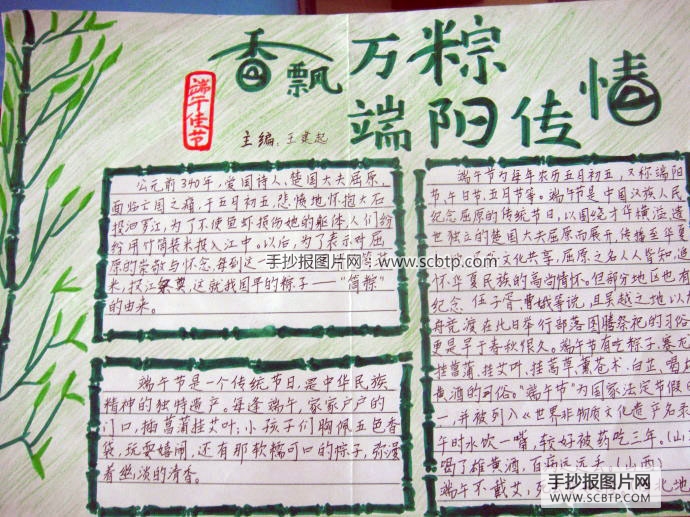 香飘万粽
端阳传情
端午佳节
主编:王建起
公元前340年,爱国诗人、楚国大夫屈原,
面临亡国之痛,于五月初五,悲愤地怀抱大石
投汨罗江,为了不使鱼虾损伤她的躯体,人们纷
纷用竹筒装米投入江中。以后,为了表示对屈
原的崇敬与怀念,每到这一
米,投江祭奠,这就我国早的粽子——"筒粽"
的由来。
端午节是一个传统节日,是中华民族
精神的独特遗产。每逢端午,家家户户的
门口,插菖蒲挂艾叶,小孩子们胸佩五色香
袋,玩耍嬉闹,还有那软糯可口的粽子,弥漫
着幽淡的清香。
端午节为每年农历五月初五,又称端阳
节、午日节、五月节等。端午节是中国汉族人民
纪念屈原的传统节日,以围绕才华横溢、遗
世独立的楚国大夫屈原而展开,传播至华夏
文化共享,屈原之名人人皆知,追
怀华夏民族的高尚情怀。但部分地区也有
纪念伍子胥、曹娥等说,且吴越之地以龙
舟竞渡在此日举行部落图腾祭祀的习俗
更是早于春秋很久。端午节有吃粽子,赛龙
挂菖蒲、挂艾叶、挂蒿草,薰苍术、白芷,喝
黄酒的习俗。"端午节"为国家法定节假
一,并被列入《世界非物质文化遗产名录
午时水饮一嘴,较好被药吃三年。(山
喝了雄黄酒,百病远远丢(山西)
端午不戴艾,
手抄报图片网
www.scbtp.com
手抄报图片网
WWW.SCBTP.COM